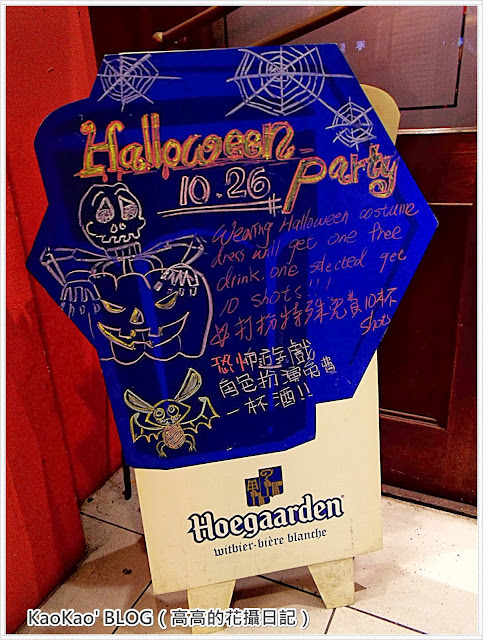 Halloween
10.26 Party
Wearing Halloween costume
dress will get one free
drink. one selected get
10 shots!!!
打扮特殊免費10杯
shots
恐怖遊戲
角色扮演免費
一杯酒!!
Hoegaarden
witbier-bière blanche
KaoKao' BLOG ( 高高的花攝日記 )